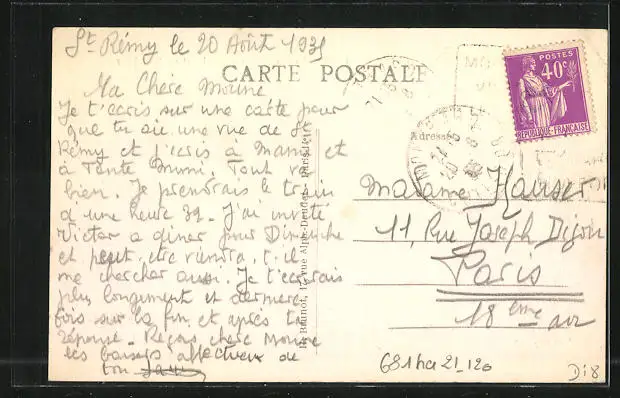 St. Rémy le 20 Août 193
CARTE POSTALE
POSTES
40c
REPUBLIQUE FRANÇAISE
Ma Chère Moune
Je t'écris sur une carte pour
que tu aie une vue de St
Rémy et j'écris à Mamie et
à Tante Mimi. Tout va
bien. Je prendrais le train
d'une heure 39. J'ai invité
Victor a diner pour Dimanche
et peut être viendra t.il
me chercher aussi. Je t'écrirais
plus longuement et dernière
fois sur la fin et après ta
réponse. Reçois chère Moune
les baisers affectueux de
ton
Adresse
Madame Hauser
11, Rue Joseph Dijon
Paris
18ème arr
681ha 21-120
Di8